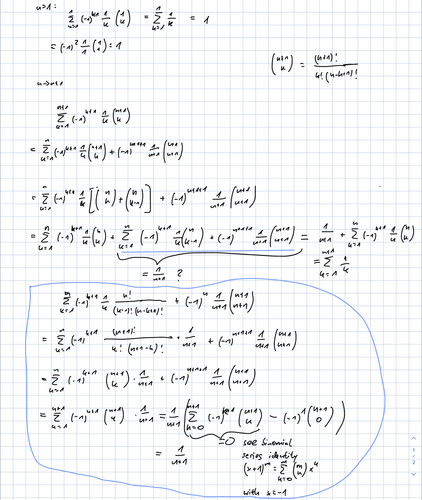 n=1:
\sum_{k=1}^{1} (-1)^{k+1} \frac{1}{k} \binom{1}{k} = \sum_{k=1}^{1} \frac{1}{k} = 1
= (-1)^2 \frac{1}{1} \binom{1}{1} = 1
\binom{n+1}{k} = \frac{(n+1)!}{k!(n-k+1)!}
n→n+1
\sum_{k=1}^{n+1} (-1)^{k+1} \frac{1}{k} \binom{n+1}{k}
= \sum_{k=1}^{n} (-1)^{k+1} \frac{1}{k} \binom{n+1}{k} + (-1)^{n+1+1} \frac{1}{n+1} \binom{n+1}{n+1}
= \sum_{k=1}^{n} (-1)^{k+1} \frac{1}{k} \left[ \binom{n}{k} + \binom{n}{k-1} \right] + (-1)^{n+1+1} \frac{1}{n+1} \binom{n+1}{n+1}
= \sum_{k=1}^{n} (-1)^{k+1} \frac{1}{k} \binom{n}{k} + \sum_{k=1}^{n} (-1)^{k+1} \frac{1}{k} \binom{n}{k-1} + (-1)^{n+1+1} \frac{1}{n+1} \binom{n+1}{n+1} = \frac{1}{n+1} + \sum_{k=1}^{n} (-1)^{k+1} \frac{1}{k} \binom{n}{k}
= \frac{1}{n+1} ?
= \sum_{k=1}^{n+1} \frac{1}{k}
\sum_{k=1}^{n} (-1)^{k+1} \frac{1}{k} \frac{n!}{(k-1)!(n-k+1)!} + (-1)^{n} \frac{1}{n+1} \binom{n+1}{n+1}
= \sum_{k=1}^{n} (-1)^{k+1} \frac{(n+1)!}{k!(n+1-k)!} \cdot \frac{1}{n+1} + (-1)^{n+1+1} \frac{1}{n+1} \binom{n+1}{n+1}
= \sum_{k=1}^{n} (-1)^{k+1} \binom{n+1}{k} \cdot \frac{1}{n+1} + (-1)^{n+1+1} \frac{1}{n+1} \binom{n+1}{n+1}
= \sum_{k=1}^{n+1} (-1)^{k+1} \binom{n+1}{k} \cdot \frac{1}{n+1} = \frac{1}{n+1} \left( \sum_{k=0}^{n+1} (-1)^{k+1} \binom{n+1}{k} - (-1)^1 \binom{n+1}{0} \right)
=0 see binomial
= \frac{1}{n+1}
series identity
(x+1)^m = \sum_{k=0}^{m} \binom{m}{k} x^k
with x=-1
1/2